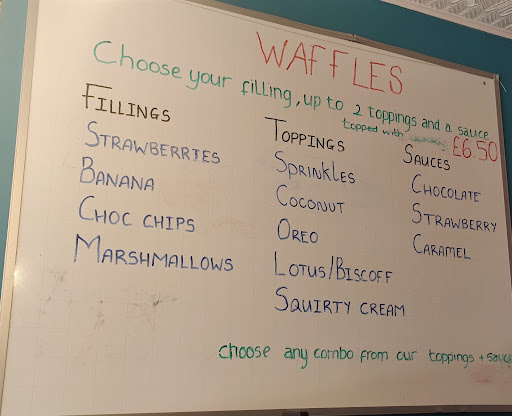 WAFFLES
Choose your filling, up to 2 toppings and a sauce
topped with
£6.50
FILLINGS
STRAWBERRIES
BANANA
CHOC CHIPS
MARSHMALLOWS
TOPPINGS
SPRINKLES
COCONUT
OREO
LOTUS/BISCOFF
SQUIRTY CREAM
SAUCES
CHOCOLATE
STRAWBERRY
CARAMEL
choose any combo from our toppings + sauc